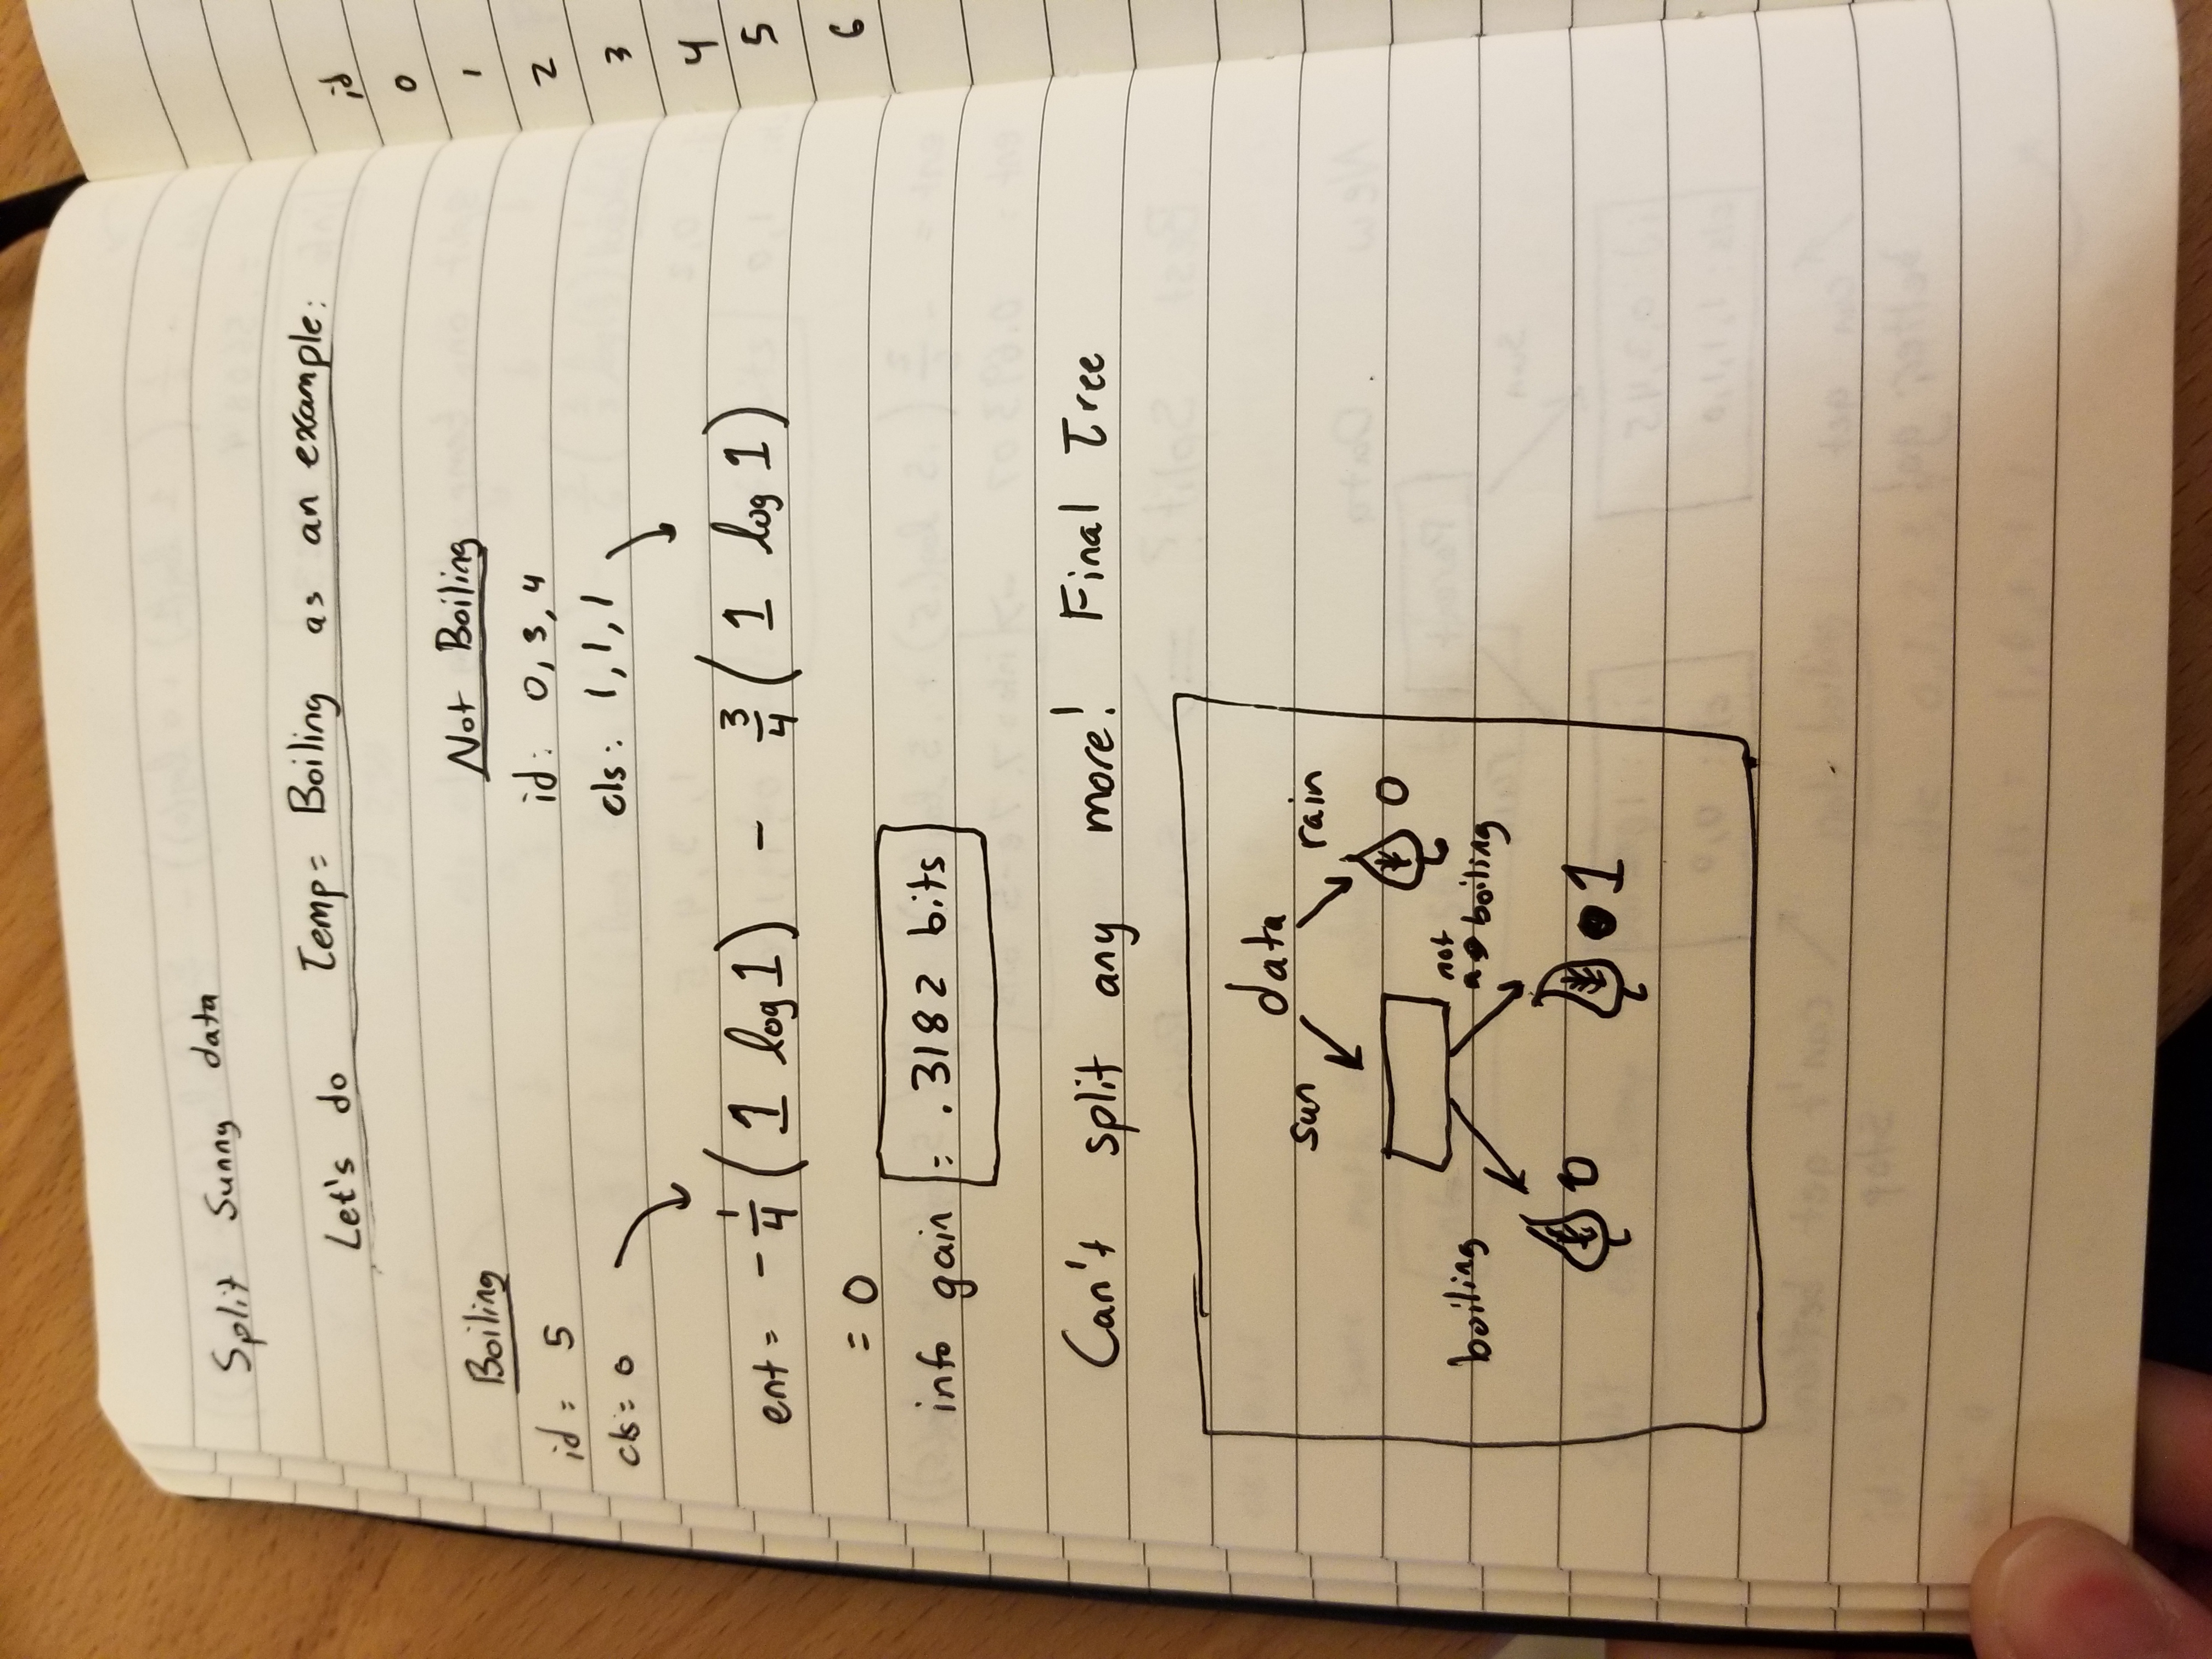 Split Sunny data
Let's do Temp= Boiling as an example:
Boiling
id= 5
cls= 0
Not Boiling
id: 0, 3, 4
cls: 1, 1, 1
ent= -1/4 ( 1 log 1 ) - 3/4 ( 1 log 1 )
= 0
info gain = .3182 bits
Can't split any more! Final Tree
data
sun rain
0
boiling not boiling
0 1
id
0
1
2
3
4
5
6